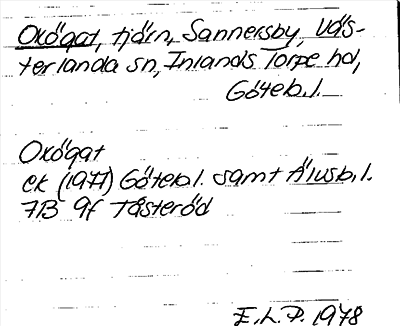 Oxögat, tjärn, Sannersby, Väs-
terlanda sn, Inlands Torpe hd,
Göteb. l.
Oxögat
ek (1977) Göteb. l. samt Älvsb. l.
7B 9f Tåsteröd
E. L. P. 1978